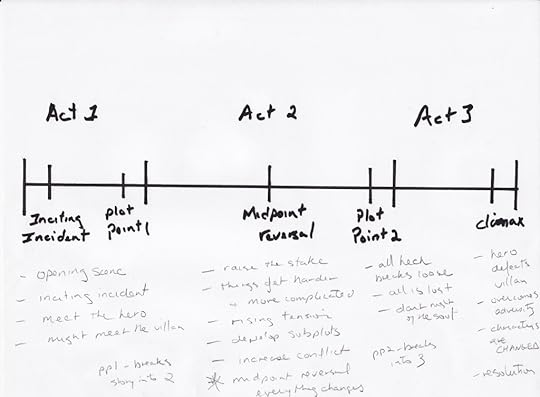 Act 1
Act 2
Act 3
Inciting
Incident
Plot
Point 1
Midpoint
reversal
Plot
Point 2
climax
- opening scene
- inciting incident
- meet the hero
- might meet the villan
pp1 - breaks
story into 2
- raise the stake
- things get harder
+ more complicated
- rising tension
- develop subplots
- increase conflict
* midpoint reversal
everything changes
- all heck
breaks loose
- all is lost
- dark night
of the soul
pp2 - breaks
into 3
- hero
defeats
villan
- overcomes
adversity
- characters
are
CHANGED
- resolution